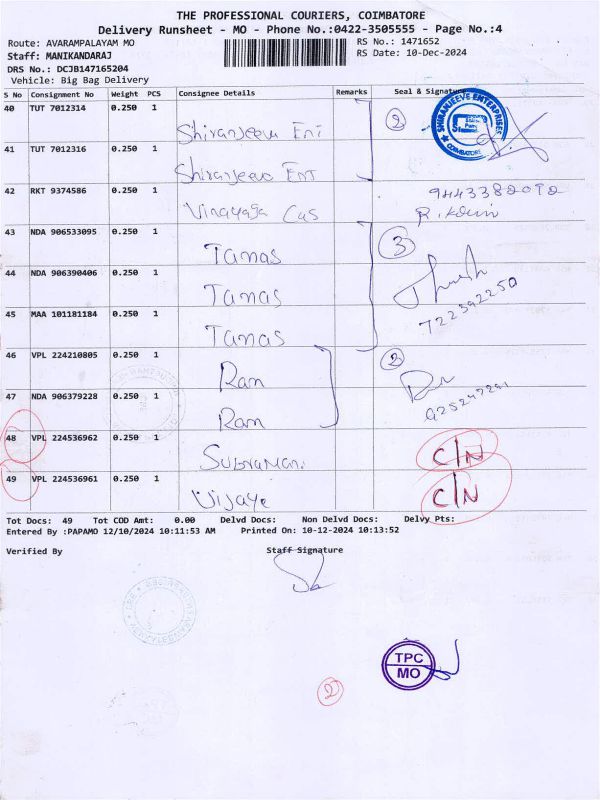 THE PROFESSIONAL COURIERS, COIMBATORE
Delivery Runsheet - MO - Phone No.:0422-3505555 - Page No.:4
Route: AVARAMPALAYAM MO RS No.: 1471652
Staff: MANIKANDARAJ RS Date: 10-Dec-2024
DRS No.: DCJB147165204
Vehicle: Big Bag Delivery
S No Consignment No Weight PCS Consignee Details Remarks Seal & Signature
40 TUT 7012314 0.250 1 Shiranjeevi Ent 2
SHIRANJEEVE ENTERPRISES COIMBATORE
41 TUT 7012316 0.250 1 Shiranjeevo Ent
42 RKT 9374586 0.250 1 Vinayaga Cas 9443382092
43 NDA 906533095 0.250 1 Tamas 3
44 NDA 906390406 0.250 1 Tamas
722392250
45 MAA 101181184 0.250 1 Tamas
46 VPL 224210805 0.250 1 Ram 2
47 NDA 906379228 0.250 1 Ram
48 VPL 224536962 0.250 1 Subramani C/N
49 VPL 224536961 0.250 1 Vijaye C/N
Tot Docs: 49 Tot COD Amt: 0.00 Delvd Docs: Non Delvd Docs: Delvy Pts:
Entered By :PAPAMO 12/10/2024 10:11:53 AM Printed On: 10-12-2024 10:13:52
Verified By Staff Signature
TPC
MO
2